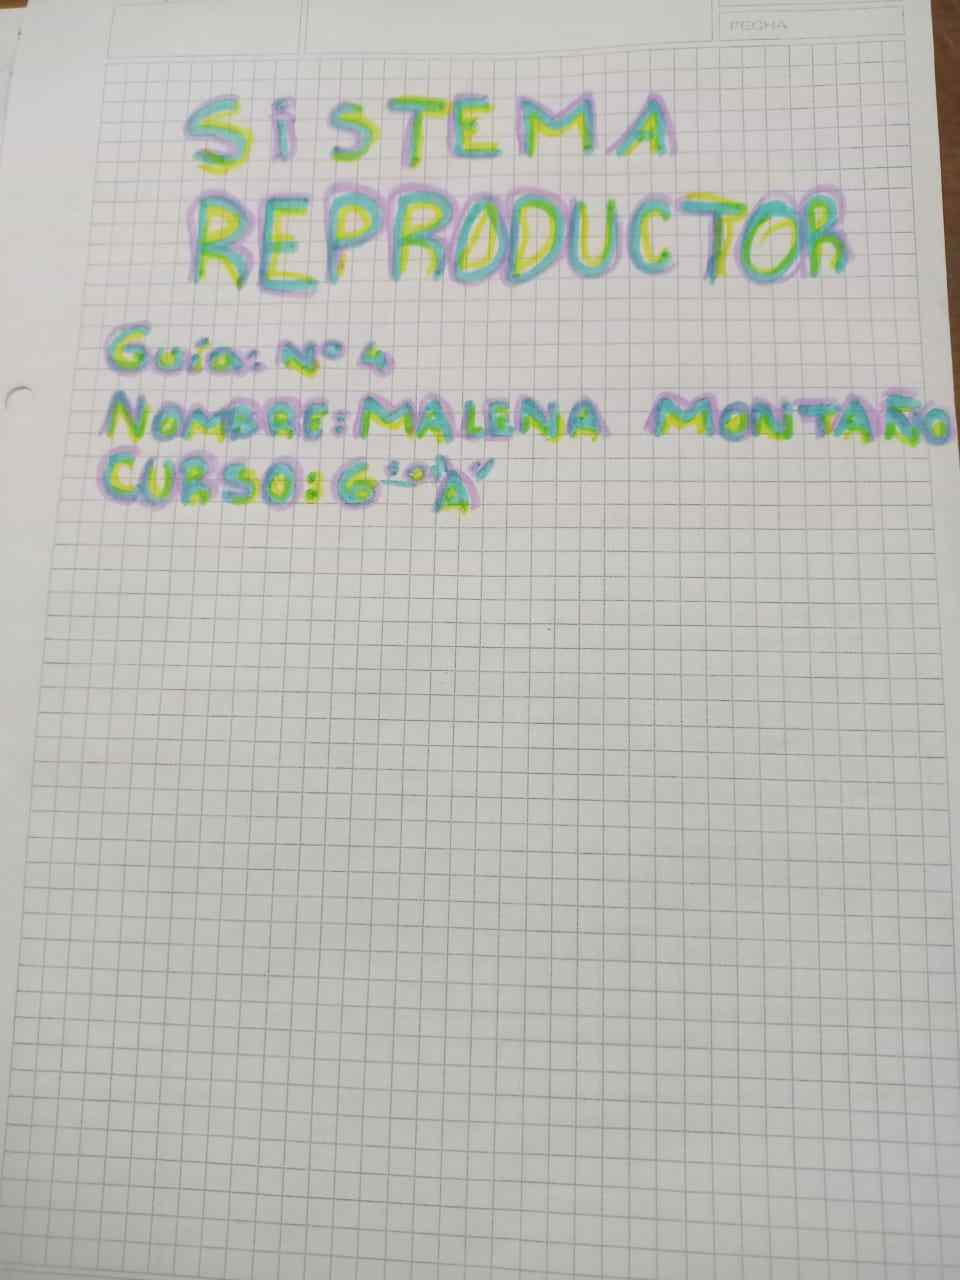 FECHA
SiSTEMA
REPRODUCTOR
Guía: Nº 4
NOMBRE: MALENA MONTAÑO
CURSO: 6º "A"